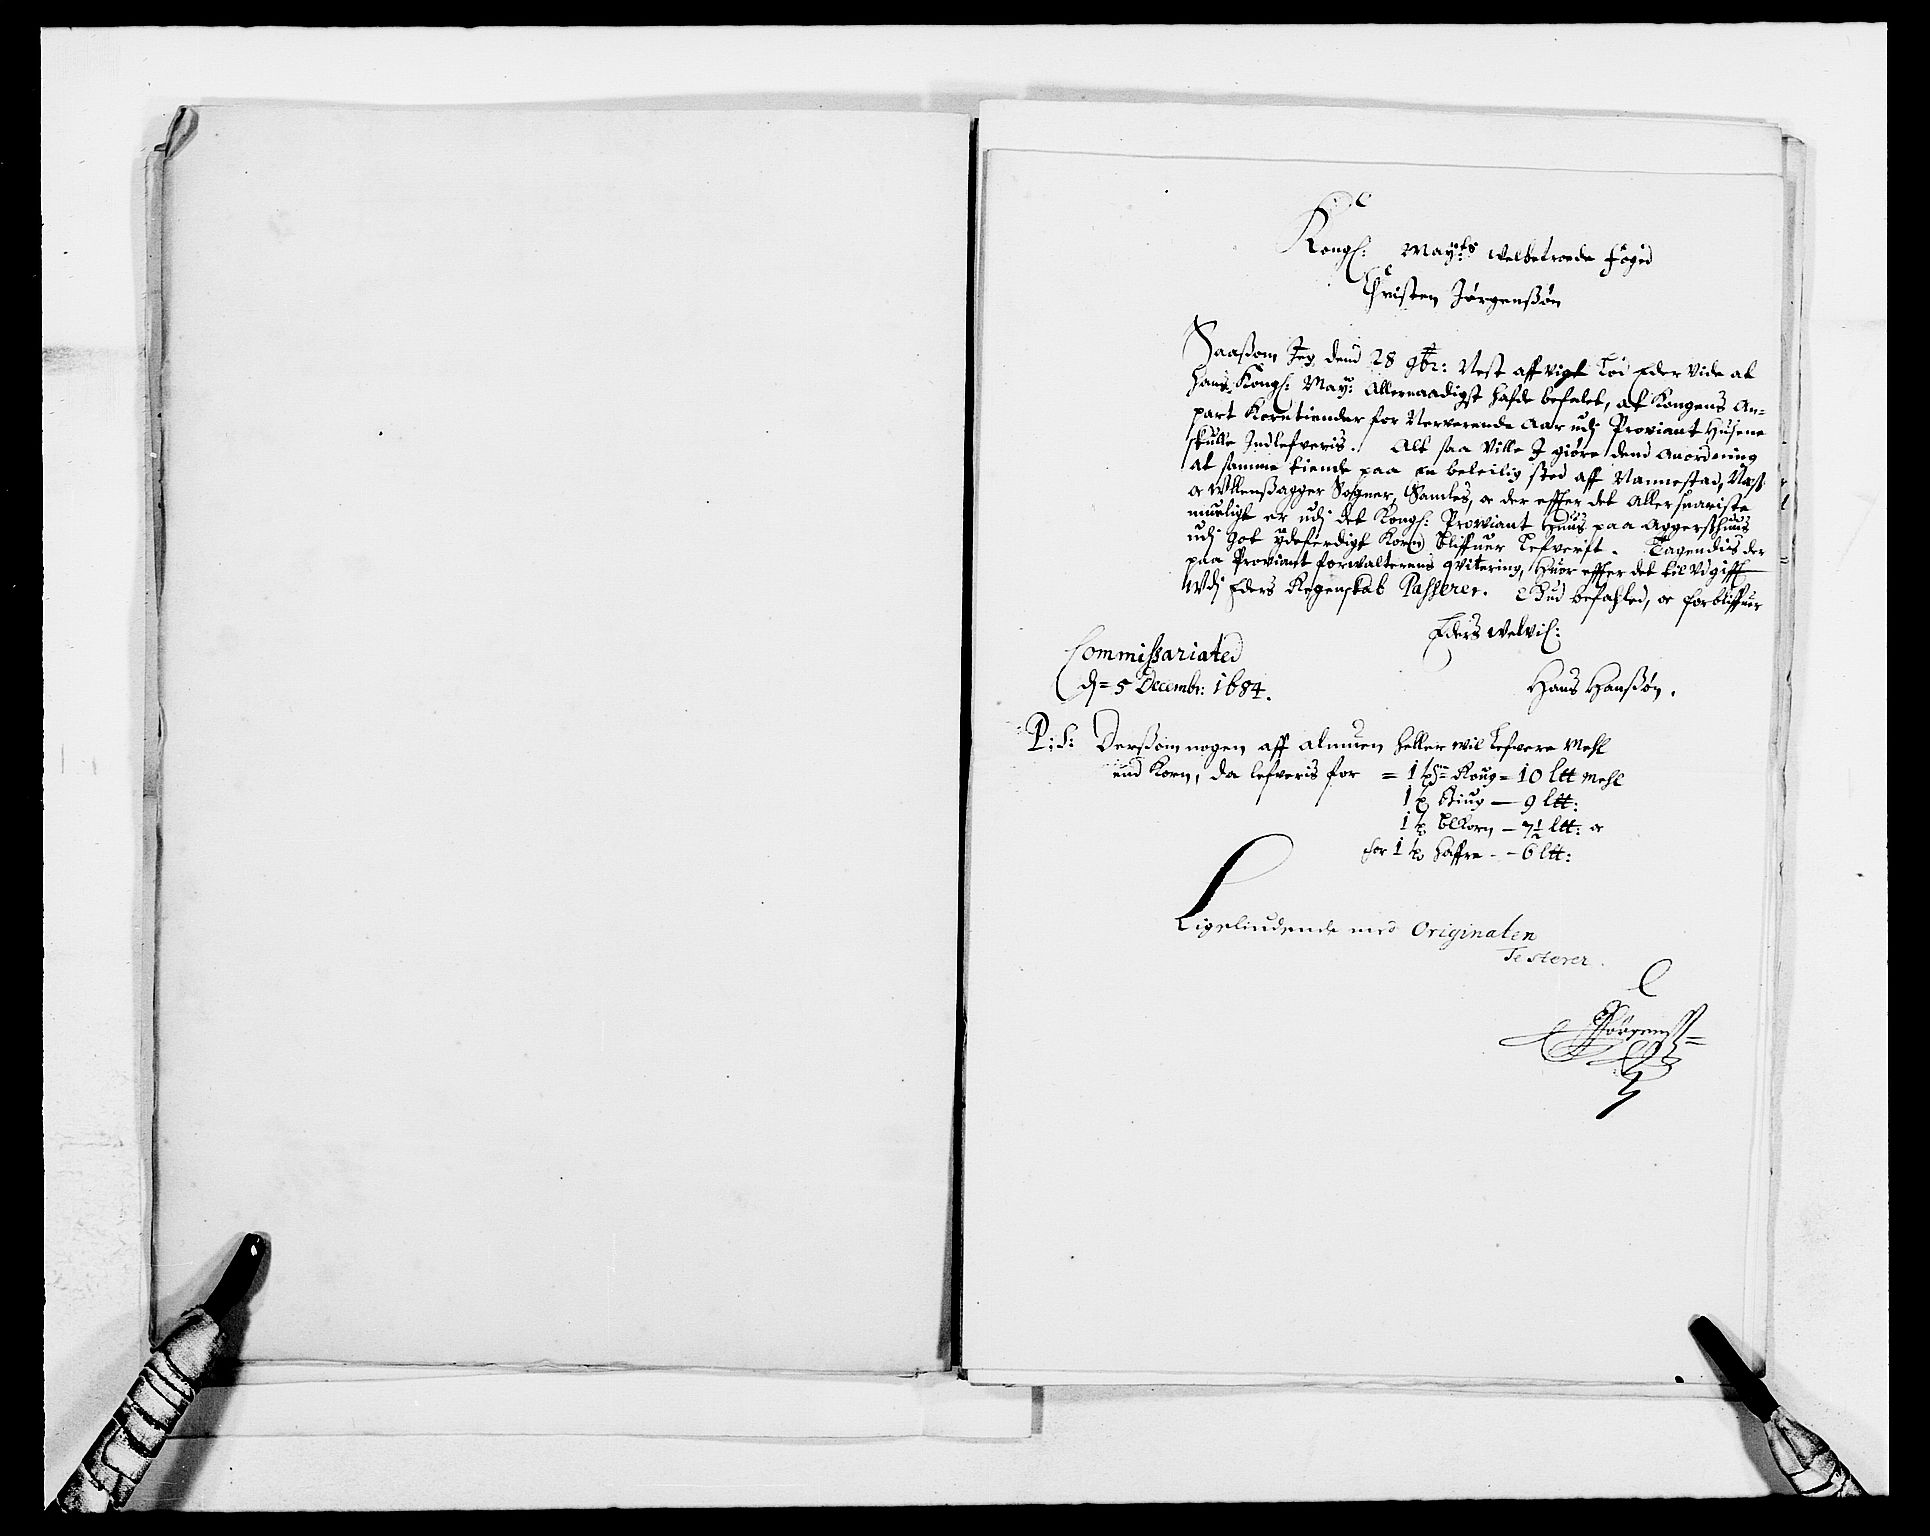 Kongl: May:ts velbetroede fogid
Christen Jørgenßøn
Saasom Jeg dend 28 9br: Nest affvigt Loed Eder vide at
hans Kongl: May: Allernaadigst hafde befalet, at Kongens An-
part Korntiender for Nerverende Aar udj Proviant Husene
skulle Indlefveris. Alt saa ville I giøre dend Anordning
at samme tiende paa en beleilig sted aff Nannestad, Næs
oc Ullensagger Sogner, Samles, oc der effter det Allersnariste
mueligt er udj det Kongl: Proviant Huus paa Aggershuus
udj got ydeferdigt Korn bliffuer Lefverit. Tagendis der
paa Proviant forvalterens qvitering, Huor effter det til Udgifft
Udj Eders Regenskab Passerer. Gud befahled, oc forbliffuer
Eders velvil:
Commissariated
dj= 5 Decembr: 1684.
Hans Hanßøn.
P: S: Derßom nogen aff almuen heller vil Lefvere Mehl
end Korn, da lefveris for = 1 tde Roug = 10 Ltt Mehl
1 t Biug — 9 ltt:
1 t Blkorn — 7½ ltt: oc
for 1 t haffre - - 6 ltt:
Ligeliudende med Originalen
Testerer.